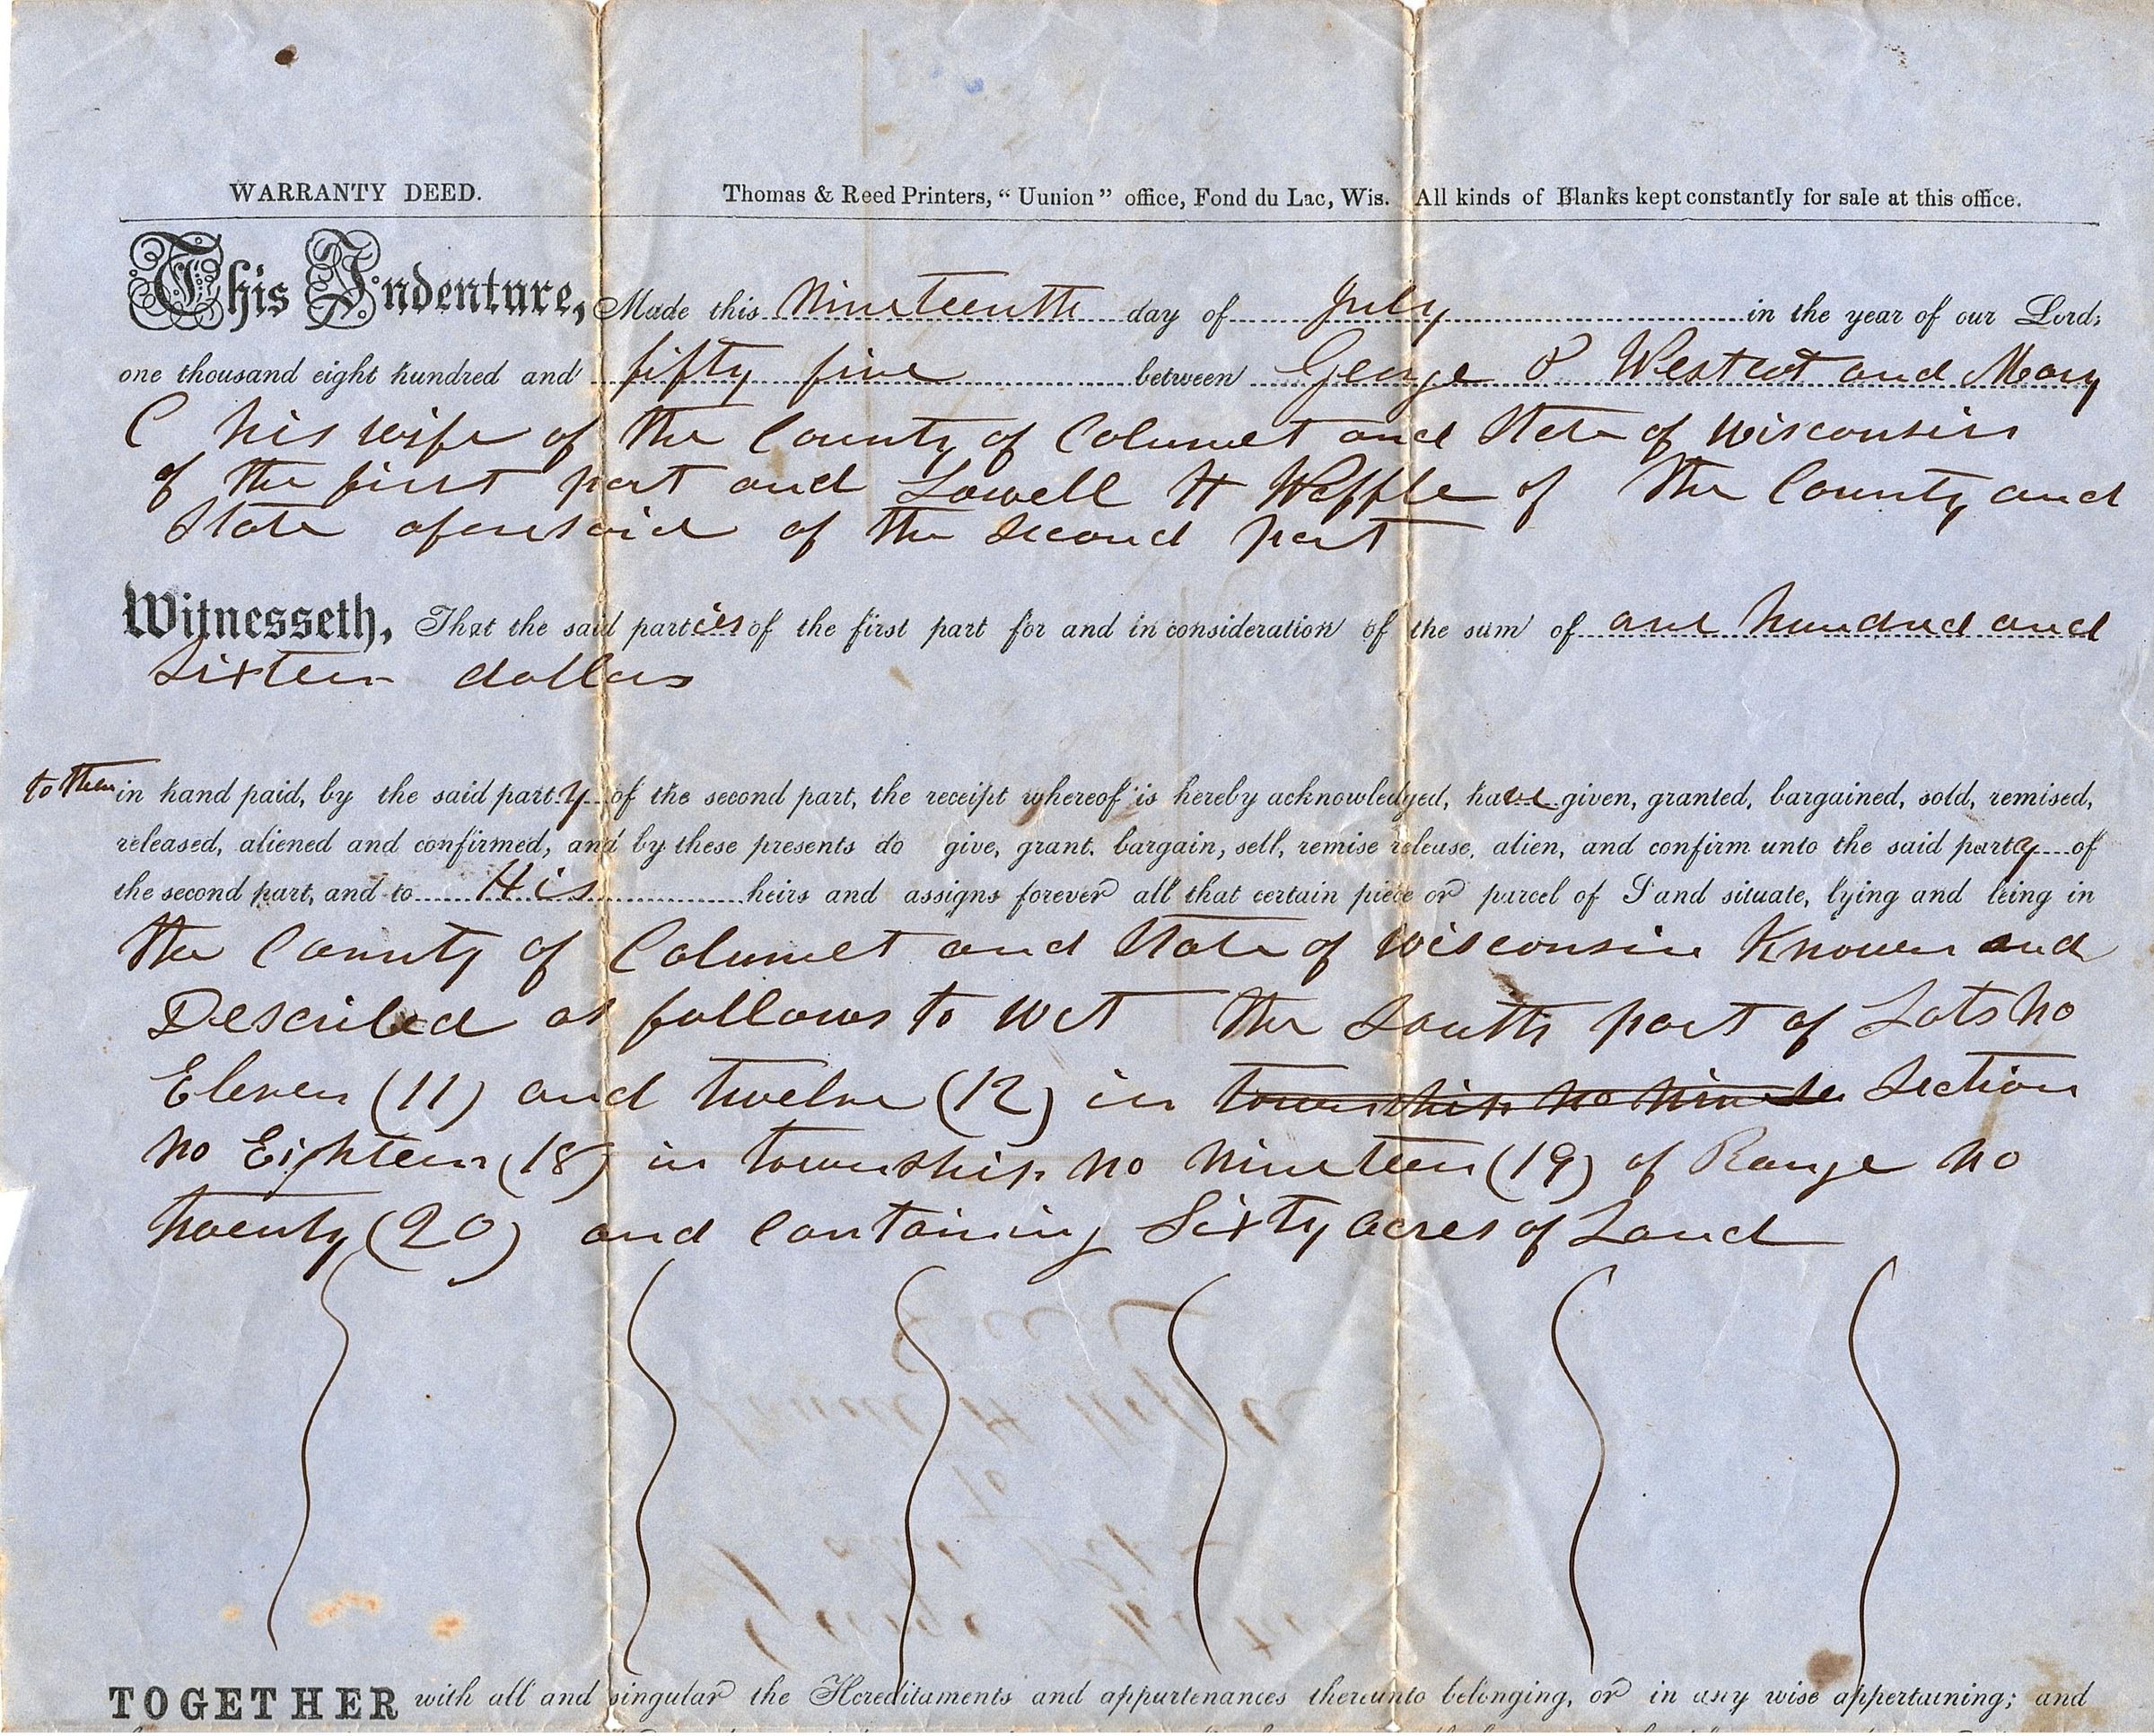 WARRANTY DEED. Thomas & Reed Printers, "Uunion" office, Fond du Lac, Wis. All kinds of Blanks kept constantly for sale at this office.
This Indenture, Made this Nineteenth day of July in the year of our Lord;
one thousand eight hundred and fifty five between George P Westcot and Mary
C his wife of the County of Calumet and State of Wisconsin
of the first part and Lowell H Waffle of the County and
State aforesaid of the second part
Witnesseth, That the said parties of the first part for and in consideration of the sum of one hundred and
Sixteen dollars
to them in hand paid, by the said party of the second part, the receipt whereof is hereby acknowledged, have given, granted, bargained, sold, remised,
released, aliened and confirmed, and by these presents do give, grant, bargain, sell, remise release, alien, and confirm unto the said party of
the second part, and to His heirs and assigns forever all that certain piece or parcel of Land situate, lying and being in
the County of Calumet and State of Wisconsin Known and
Described as follows to wit the South part of Lots No
Eleven (11) and twelve (12) in township no Section
No Eighteen (18) in township No Nineteen (19) of Range No
twenty (20) and Containing Sixty acres of Land
TOGETHER with all and singular the Hereditaments and appurtenances thereunto belonging, or in any wise appertaining; and